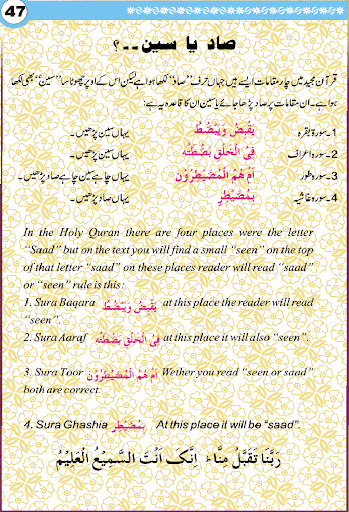 47
صاد یا سین۔۔؟
قرآن مجید میں چار مقامات ایسے ہیں جہاں حرف ”صاد“ لکھا ہوا ہے لیکن اس کے اوپر چھوٹا سا ”سین“ بھی لکھا
ہوا ہے۔ ان مقامات پر صاد پڑھا جائے یا سین ان کا قاعدہ یہ ہے:
1۔سورۃ بقرہ يَقْبِضُ وَيَبْصُۜطُ یہاں سین پڑھیں۔
2۔سورۃ اعراف فِي الْخَلْقِ بَصْۜطَةً یہاں سین پڑھیں۔
3۔سورۃ طور اَمْ هُمُ الْمُصَۜيْطِرُوْنَ یہاں چاہے سین چاہے صاد پڑھیں۔
4۔سورۃ غاشیہ بِمُصَۜيْطِرٍ یہاں صاد پڑھیں۔
In the Holy Quran there are four places were the letter
“Saad” but on the text you will find a small “seen” on the top
of that letter “saad” on these places reader will read “saad”
or “seen” rule is this:
1. Sura Baqara يَقْبِضُ وَيَبْصُۜطُ at this place the reader will read
“seen”.
2. Sura Aaraf فِي الْخَلْقِ بَصْۜطَةً at this place it will also “seen”.
3 Sura Toor اَمْ هُمُ الْمُصَۜيْطِرُوْنَ Wether you read “seen or saad”
both are correct.
4. Sura Ghashia بِمُصَۜيْطِرٍ At this place it will be “saad”.
رَبَّنَا تَقَبَّلْ مِنَّا ؕ اِنَّكَ اَنْتَ السَّمِيْعُ الْعَلِيْمُ